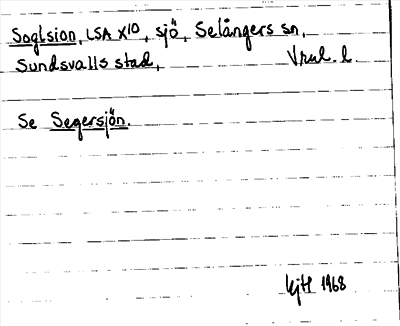 Soglsion, LSA X10, sjö, Selångers sn,
Sundsvalls stad, Vrul. l.
Se Segersjön.
kjH 1968